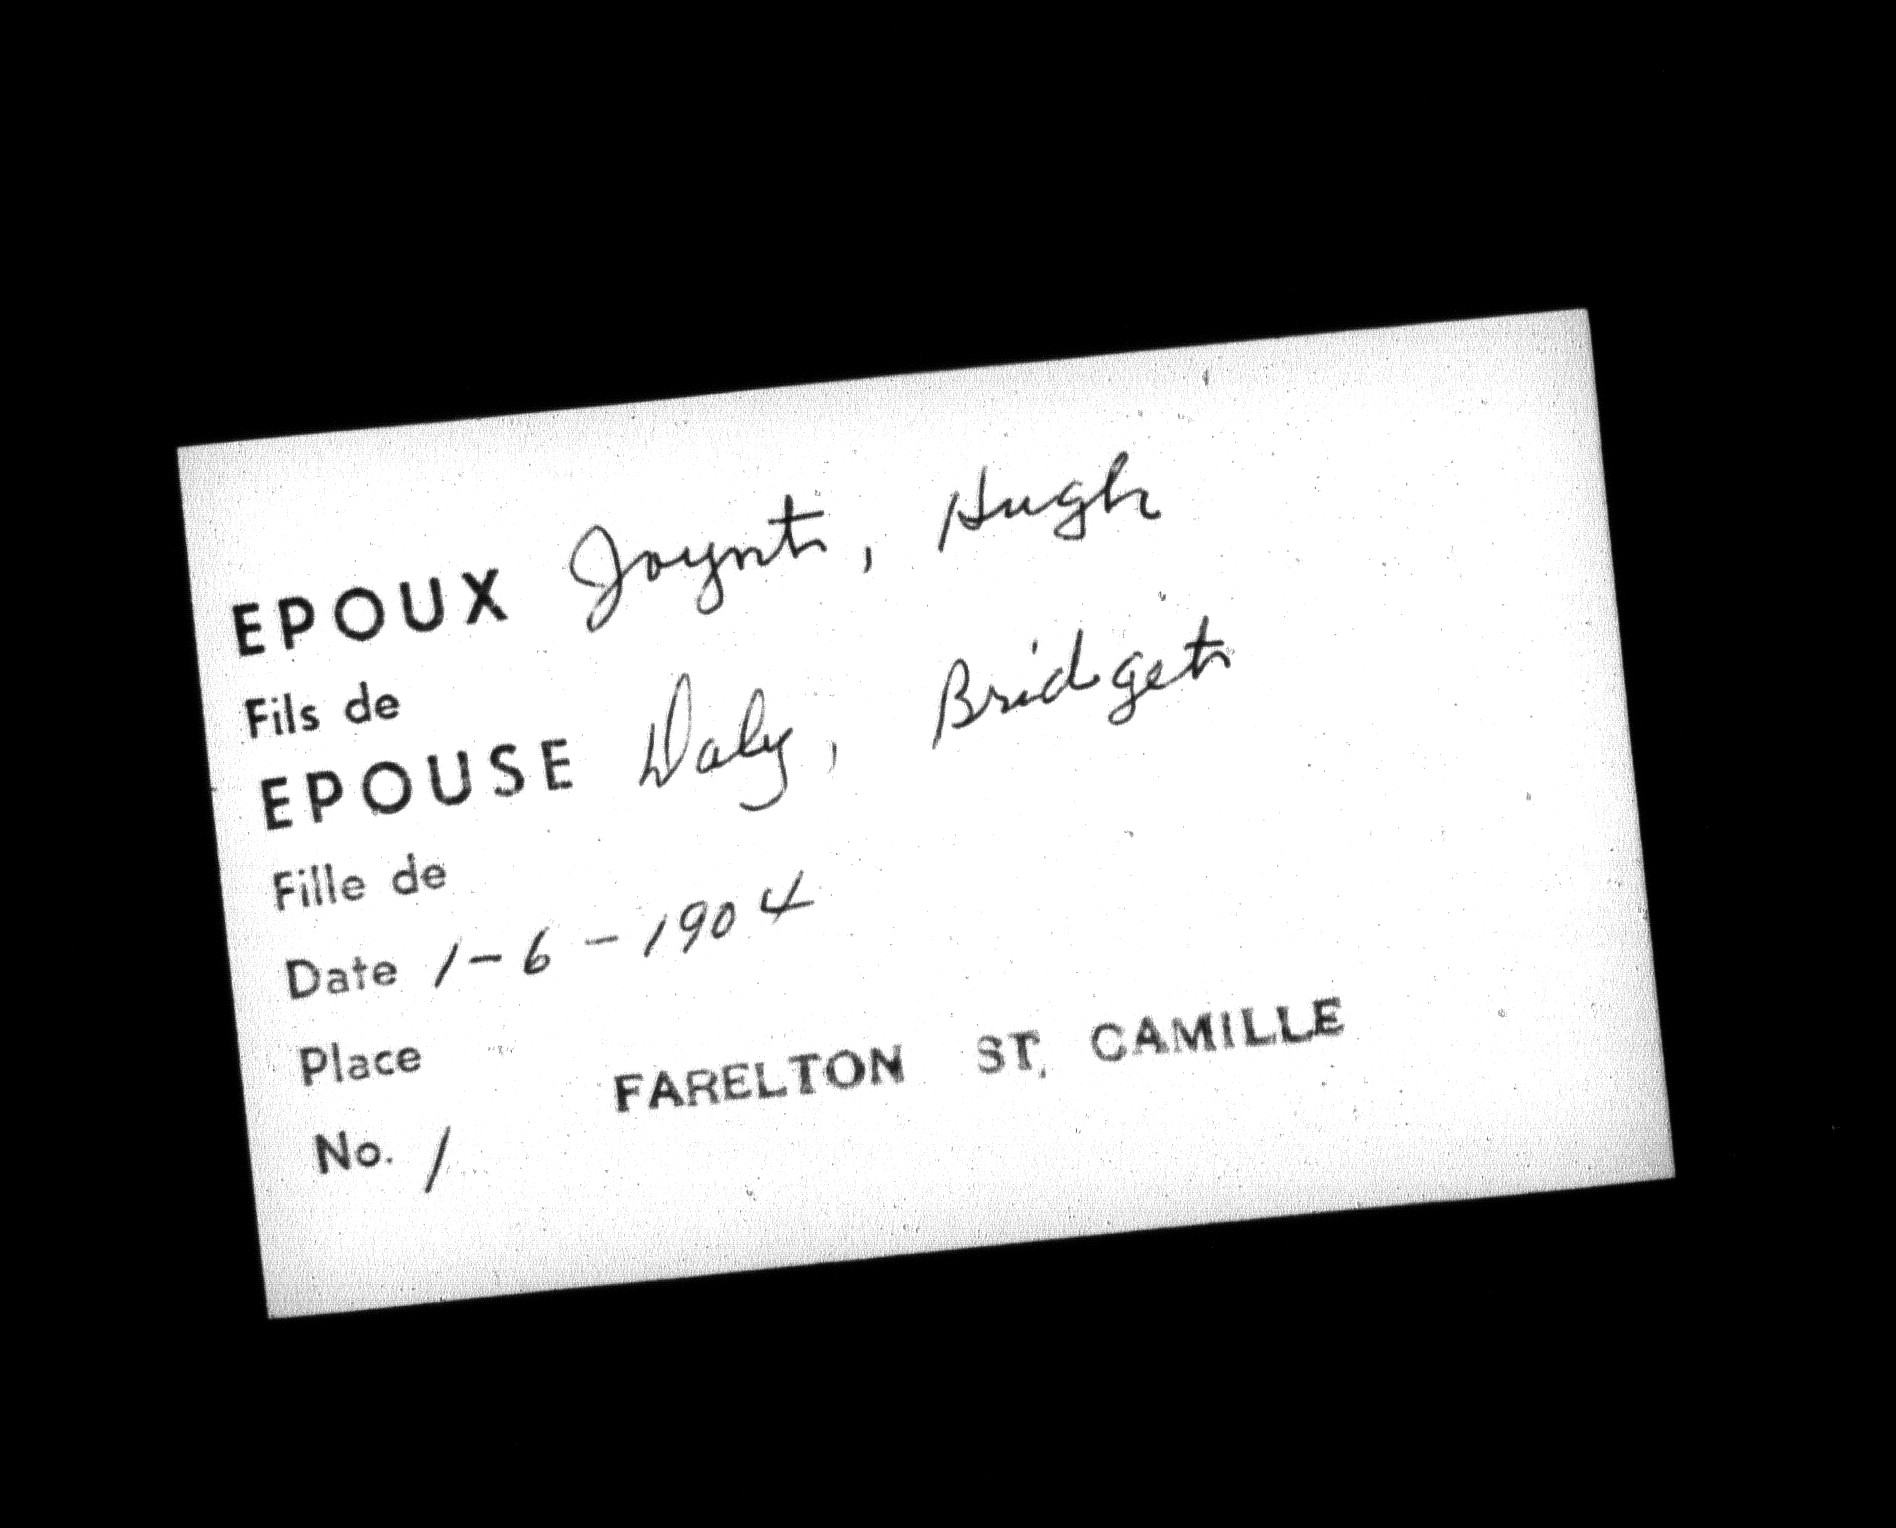 EPOUX Joynt, Hugh
Fils de
EPOUSE Daly, Bridget
Fille de
Date 1-6-1904
Place
FARELTON ST. CAMILLE
No. 1